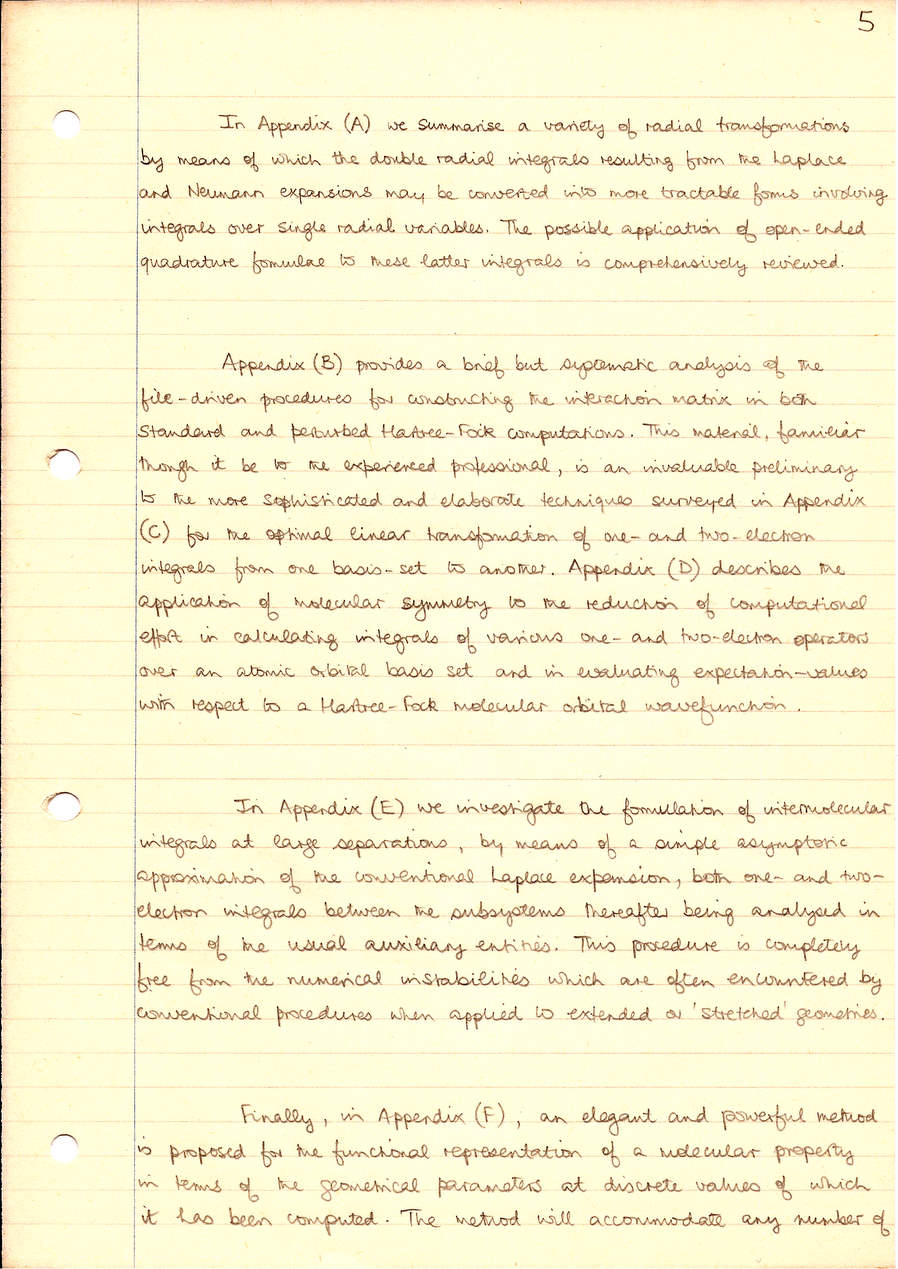 5
In Appendix (A) we summarise a variety of radial transformations
by means of which the double radial integrals resulting from the Laplace
and Neumann expansions may be converted into more tractable forms involving
integrals over single radial variables. The possible application of open-ended
quadrature formulae to these latter integrals is comprehensively reviewed.
Appendix (B) provides a brief but systematic analysis of the
file-driven procedures for constructing the interaction matrix in both
standard and perturbed Hartree-Fock computations. This material, familiar
though it be to the experienced professional, is an invaluable preliminary
to the more sophisticated and elaborate techniques surveyed in Appendix
(C) for the optimal linear transformation of one- and two-electron
integrals from one basis-set to another. Appendix (D) describes the
application of molecular symmetry to the reduction of computational
effort in calculating integrals of various one- and two-electron operators
over an atomic orbital basis set and in evaluating expectation-values
with respect to a Hartree-Fock molecular orbital wavefunction.
In Appendix (E) we investigate the formulation of intermolecular
integrals at large separations, by means of a simple asymptotic
approximation of the conventional Laplace expansion, both one- and two-
electron integrals between the subsystems thereafter being analysed in
terms of the usual auxiliary entities. This procedure is completely
free from the numerical instabilities which are often encountered by
conventional procedures when applied to extended or 'stretched' geometries.
Finally, in Appendix (F), an elegant and powerful method
is proposed for the functional representation of a molecular property
in terms of the geometrical parameters at discrete values of which
it has been computed. The method will accommodate any number of